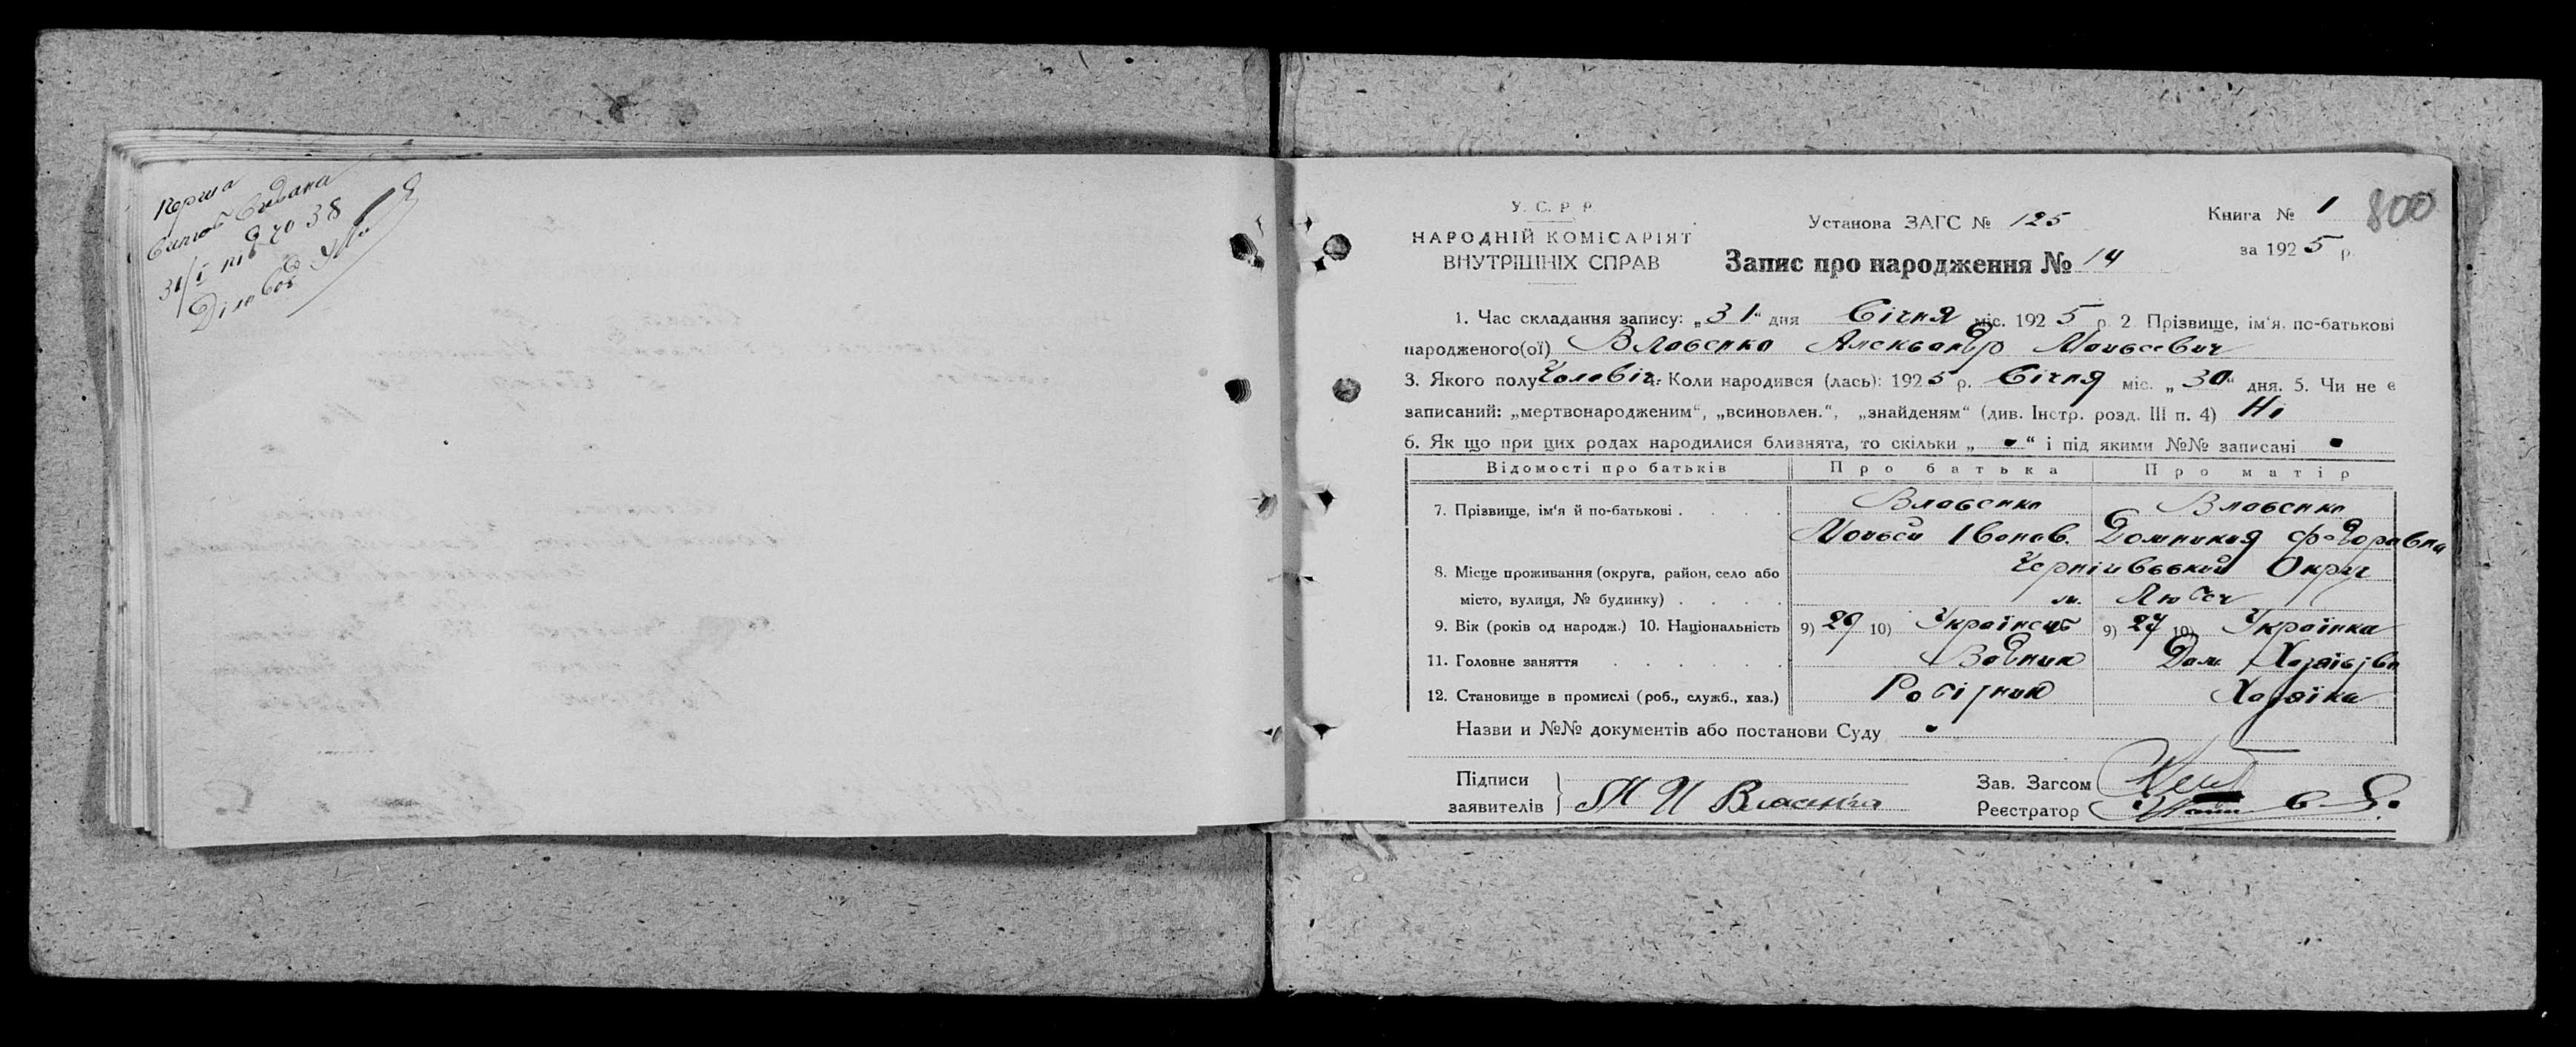 Перша
31/I під 2038
Діловод
У. С. Р. Р.
НАРОДНІЙ КОМІСАРІЯТ
ВНУТРІШНІХ СПРАВ
Установа ЗАГС № 125
Книга № 1
800
Запис про народження № 14
за 1925 р.
1. Час складання запису: „31“ дня Січня міс. 1925 р. 2 Прізвище, ім'я, по-батькові
народженого(ої) Власенко Александр Моисеевич
3. Якого полу Чоловіч. 4. Коли народився (лась): 1925 р. Січня міс. „30“ дня. 5. Чи не є
записаний: „мертвонародженим“, „всиновлен.“, „знайденям“ (див. Інстр. розд. III п. 4) Ні
6. Як що при цих родах народилися близнята, то скільки „-“ і під якими №№ записані -
Відомості про батьків Про батька Про матір
7. Прізвище, ім'я й по-батькові . . . . Власенко Власенко
Моисей Іванов. Домникия Федоравна
8. Місце проживання (округа, район, село або Чернігивський Округ
місто, вулиця, № будинку) . . . . м. Любеч
9. Вік (років од народж.) 10. Національність 9) 29 10) Українець 9) 27 10) Українка
11. Головне заняття . . . . . . Водник Дом. Хозяйство
12. Становище в промислі (роб., служб., хаз.) Робітник Хазяїка
Назви и №№ документів або постанови Суду -
Підписи
заявителів } М И Власенко
Зав. Загсом
Реєстратор